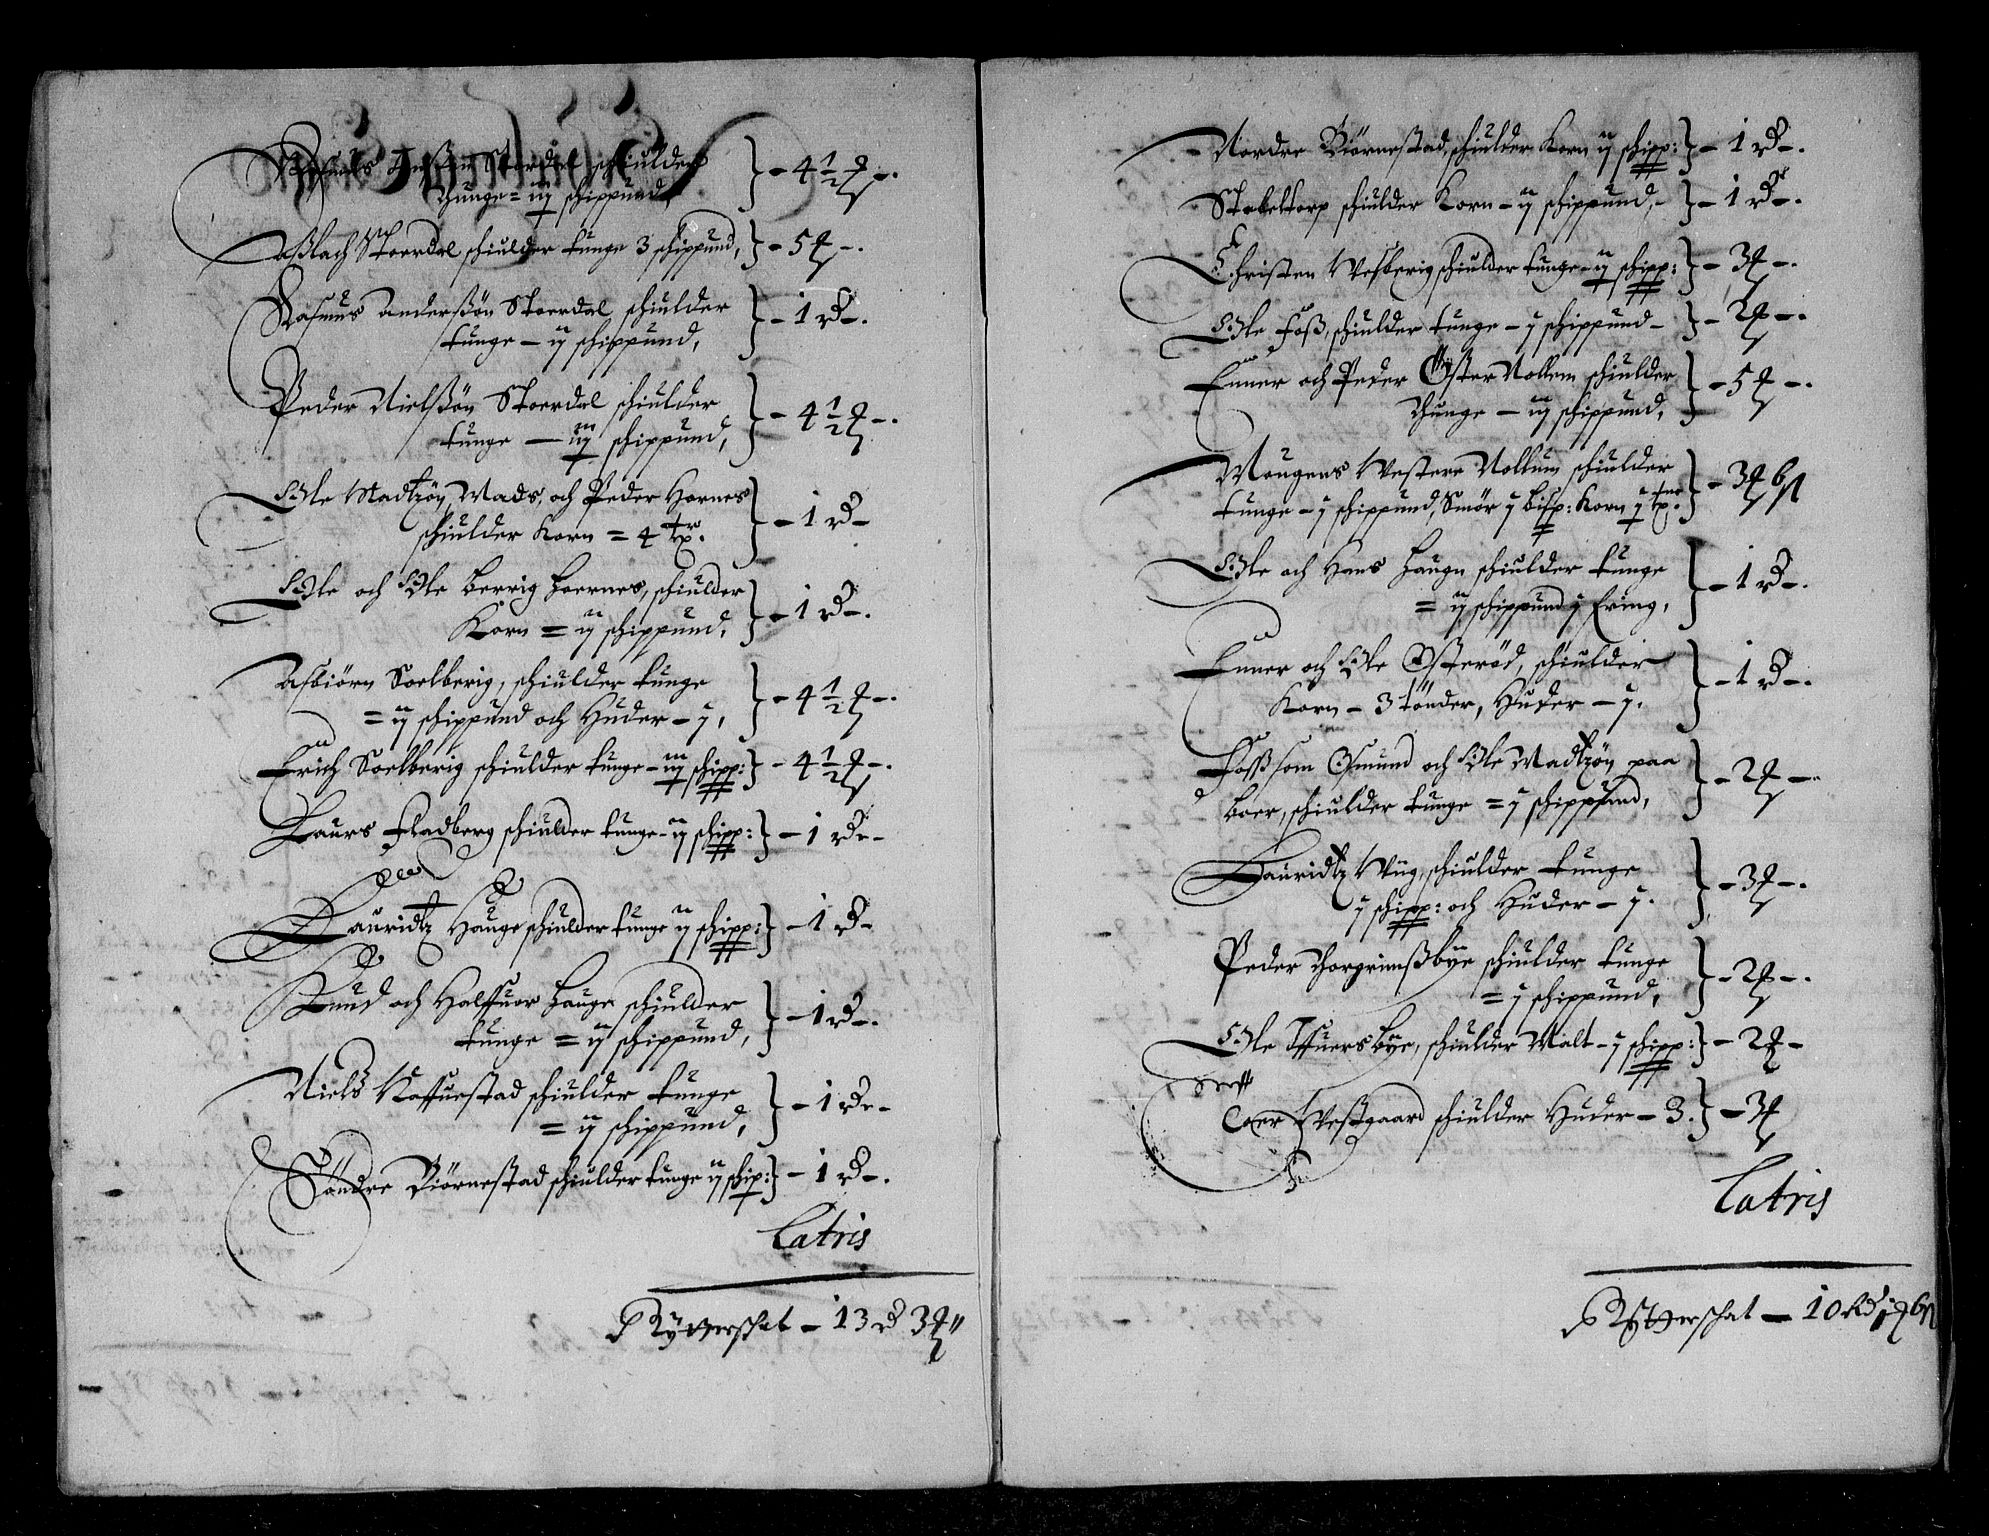 Stoerdal schiulder
thunge = iij schippund } - 4½ ort -.
Aßlach Stoerdal schiulder tunge 3 schippund, } - 5 ort -.
Rasmus Anderßøn Stoerdal schiulder
tunge - ij schippund, } - 1 rd -.
Peder Nielßøn Stoerdal schiulder
tunge - iij schippund, } - 4½ ort -.
Olle Madtzøn, Mads, och Peder Hornes
schiulder Korn = 4 tr. } - 1 rd -
Olle och Olle Berrig Hoernes, schiulder
Korn = ij schippund, } - 1 rd -.
Asbiørn Soelberig, schiulder tunge
= ij schippund och Huder - j, } - 4½ ort -.
Erich Soelberig schiulder tunge - iij schipp: } - 4½ ort -.
Laurs Fladberg schiulder tunge - ij schipp: } - 1 rd -
Lauridtz Hauge schiulder tunge ij schipp: } - 1 rd -
Knud och Halffuor Hauge schiulder
tunge = ij schippund, } - 1 rd -.
Niels Kaffuestad schiulder tunge
= ij schippund, } - 1 rd -
Søndre Biørnestad schiulder tunge ij schip: } - 1 rd -.
Latris
Rytterschat - 13 rd 3 ort
Nordre Biørnestad, schiulder Korn ij schipp: } - 1 rd -.
Stabeltorp schiulder Korn - ij schippund, - } - 1 rd -.
Christen Wesberig schiulder tunge - ij schipp: } - 3 ort -.
Olle Foß, schiulder tunge - j schippund - } - 2 ort -.
Enner och Peder Øster Nollem schiulder
thunge - iij schippund, } - 5 ort -.
Mougens Westere Nollum schiulder
tunge - j schippund, Smør j bisp: Korn j tr. } - 3 ort 6 ß
Olle och Hans Haugn schiulder tunge
= ij schippund j fring, } - 1 rd -.
Enner och Olle Osterød, schiulder
Korn - 3 tønder, Huder - j. } - 1 rd -.
Foßsom Osmund och Olle Madtzøn paa
boer, schiulder tunge = j schippund, } - 2 ort -.
Lauridtz Wiig, schiulder tunge
j schipp: och Huder - j. } - 3 ort -.
Peder Thorgrimßbye schiulder tunge
= j schippund, } - 2 ort -.
Olle Iffuersbye, schiulder Malt - j schipp: } - 2 ort -
Coer Westgaard schiulder Huder - 3. } - 3 ort
Latris
Rytterschat - 10 Rd 1 ort 6 ß